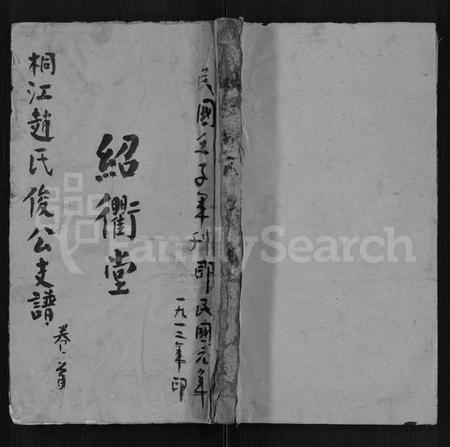 民國壬子年刋即民國元年
一九一二年印
紹衢堂
桐江趙氏俊公支譜
卷首
FamilySearch